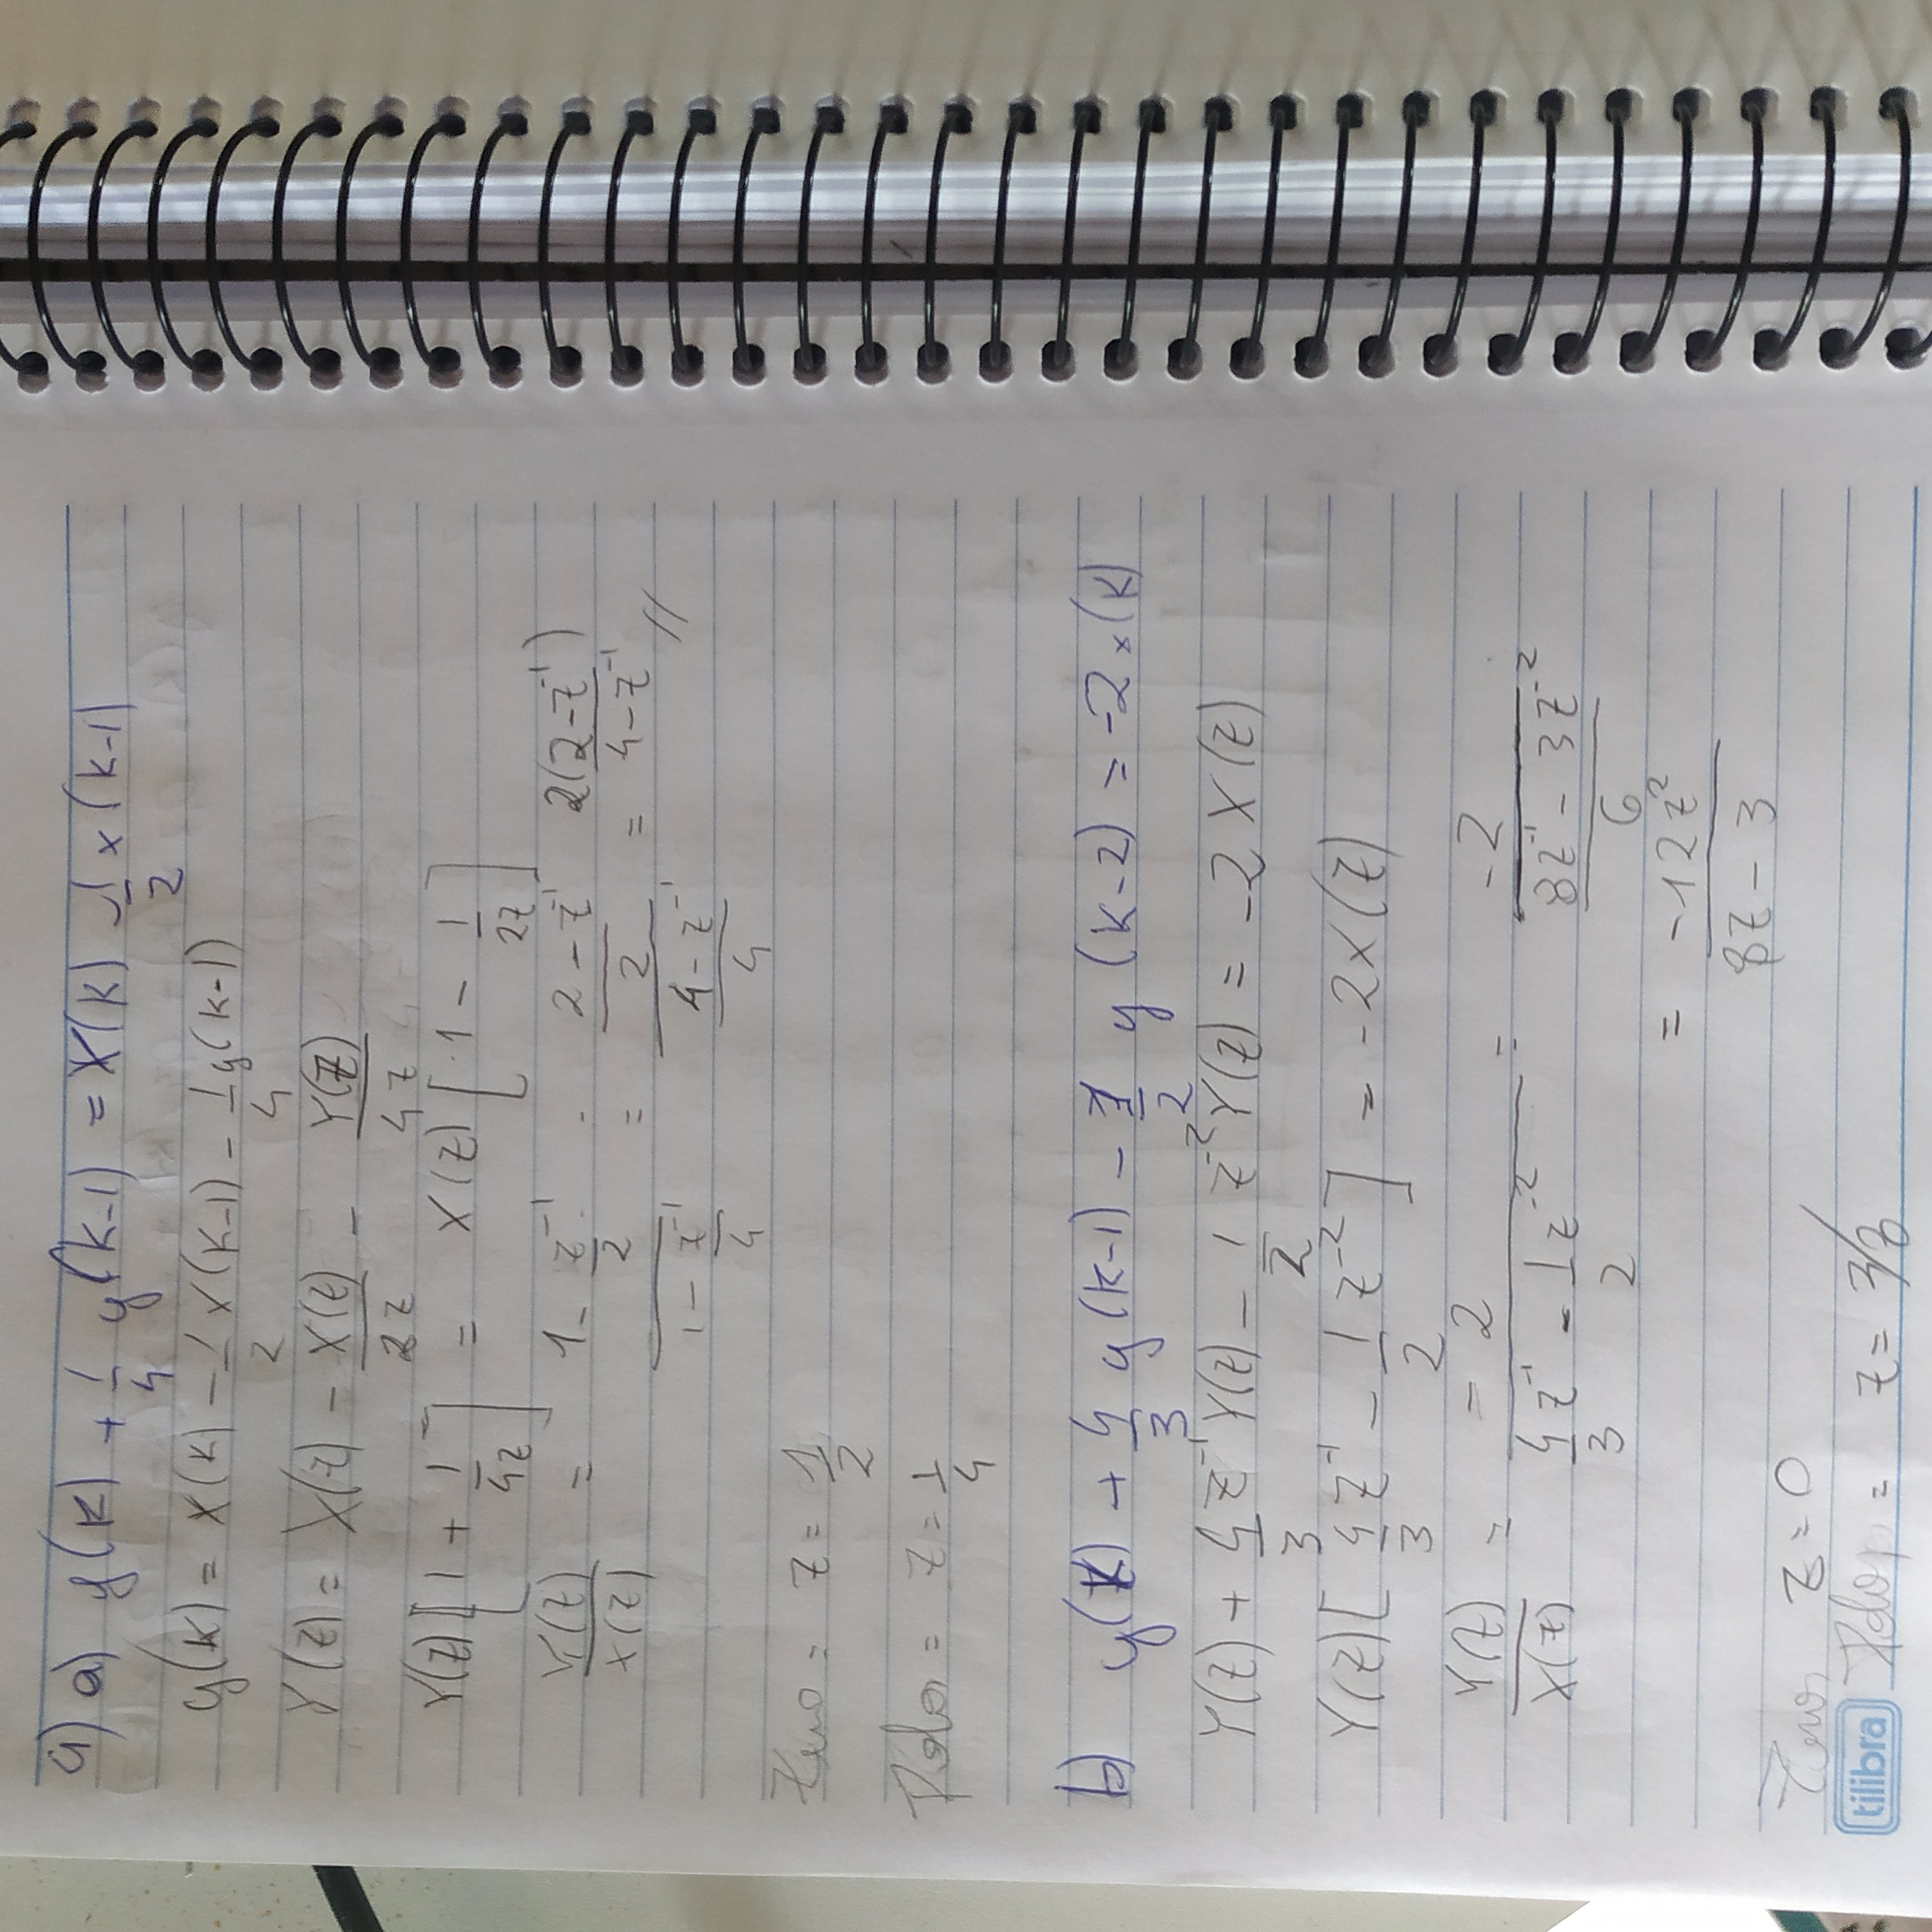 4) a) y(k) + 1/4 y(k-1) = x(k) - 1/2 x(k-1)
y(k) = x(k) - 1/2 x(k-1) - 1/4 y(k-1)
Y(z) = X(z) - X(z)/2z - Y(z)/4z
Y(z) [1 + 1/4z] = X(z) [1 - 1/2z]
Y(z)/X(z) = (1 - z⁻¹/2)/(1 - z⁻¹/4) = ((2 - z⁻¹)/2)/((4 - z⁻¹)/4) = 2(2 - z⁻¹)/(4 - z⁻¹) //
Zero = z = 1/2
Polos = z = 1/4
b) y(k) + 4/3 y(k-1) - 1/2 y(k-2) = -2x(k)
Y(z) + 4/3 z⁻¹ Y(z) - 1/2 z⁻² Y(z) = -2 X(z)
Y(z) [4/3 z⁻¹ - 1/2 z⁻²] = -2X(z)
Y(z)/X(z) = -2/(4/3 z⁻¹ - 1/2 z⁻²) = -2/((8z⁻¹ - 3z⁻²)/6)
= -12z²/(8z - 3)
Zeros z = 0
Polos = z = 3/8
tilibra